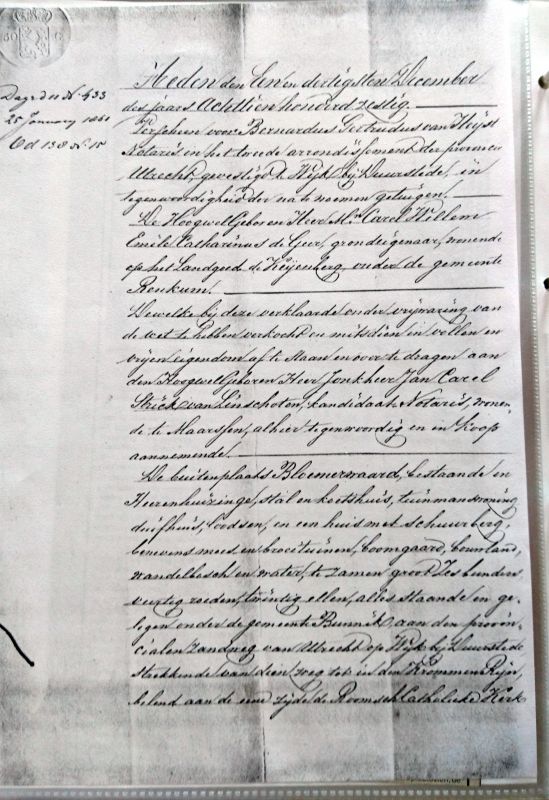 Dagr. d 11 N. 433
25 January 1861
Od 138 N. 15
Heden den Een en dertigsten December
des jaars Achttien honderd zestig.
Verscheen voor Bernardus Gertrudus van Heyst
Notaris in het tweede arrondissement der provincie
Utrecht gevestigd te Wijk bij Duurstede, in
tegenwoordigheid der na te noemen getuigen.
De Hoogwelgeboren Heer Mr. Carel Willem
Emile Catharinus de Geer, grondeigenaar, wonende
op het Landgoed de Keijenberg onder de gemeente
Renkum.
Dewelke bij deze verklaarde onder vrijwaring van
de wet te hebben verkocht en mitsdien in vollen en
vrijen eigendom af te staan en over te dragen aan
den Hoogwelgeboren Heer Jonkheer Jan Carel
Strick van Linschoten, kandidaat Notaris, wonen-
de te Maarssen, alhier tegenwoordig en in koop
aannemende.
De buitenplaats Bloemerwaard, bestaande in
Heerenhuizinge, stal en koetshuis, tuinmanswoning
duifhuis, loodsen, en een huis met schuur berg,
benevens moes en broeituinen, boomgaard, bouwland,
wandelbosch en water, te zamen groot Zes bunders
veertig roeden, twintig ellen, alles staande en ge-
legen onder de gemeente Bunnik aan den provin-
cialen Zandweg van Utrecht op Wijk bij Duurstede
strekkende van dien weg tot in den Krommen Rijn,
belend aan de eene zijde de Roomsch Catholieke Kerk